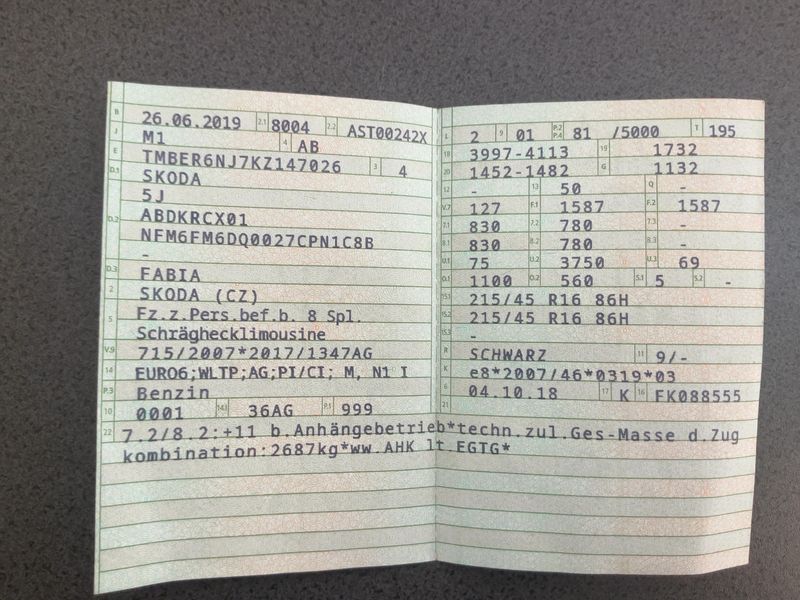 B 26.06.2019 2.1 8004 2.2 AST00242X
J M1 4 AB
E TMBER6NJ7KZ147026 3 4
D.1 SKODA
5J
D.2 ABDKRCX01
NFM6FM6DQ0027CPN1C8B
-
D.3 FABIA
2 SKODA (CZ)
5 Fz.z.Pers.bef.b. 8 Spl.
Schräghecklimousine
V.9 715/2007*2017/1347AG
14 EURO6;WLTP;AG;PI/CI; M, N1 I
P.3 Benzin
10 0001 14.1 36AG P.1 999
22 7.2/8.2:+11 b.Anhängebetrieb*techn.zul.Ges-Masse d.Zug
kombination:2687kg*ww.AHK lt.EGTG*
L 2 9 01 P.2 P.4 81 /5000 T 195
18 3997-4113 19 1732
20 1452-1482 G 1132
12 - 13 50 Q -
V.7 127 F.1 1587 F.2 1587
7.1 830 7.2 780 7.3 -
8.1 830 8.2 780 8.3 -
U.1 75 U.2 3750 U.3 69
O.1 1100 O.2 560 S.1 5 S.2 -
15.1 215/45 R16 86H
15.2 215/45 R16 86H
15.3 -
R SCHWARZ 11 9/-
K e8*2007/46*0319*03
6 04.10.18 17 K 16 FK088555
21